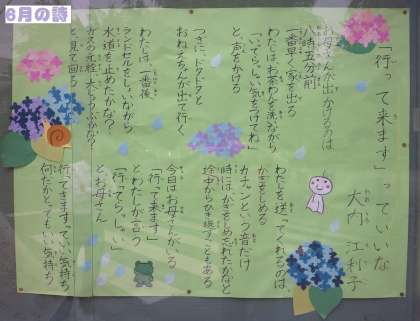 6月の詩
「行って来ます」っていいな
大内 江利子
お母さんが出かけるのは
八時五分前
一番早く家を出る
わたしはお茶わんを洗いながら
「いってらっしゃい気をつけてね」
と、声をかける
つぎに、ドタドタと
おねえちゃんが出て行く
わたしは、一番後
ランドセルをしょいながら
水道を止めたかな?
ガスの元栓、大じょうぶかな?
と、見て回る
わたしを送ってくれるのは、
かぎをしめる
カチャンという音だけ
時にはかぎをしめたかなと
途中からひき返すこともある
今日はお母さんがいる
「行って来ます」
とわたしが言う
「行ってらっしゃい」
とお母さん
行ってきますっていい気持ち
何だかとってもいい気持ち